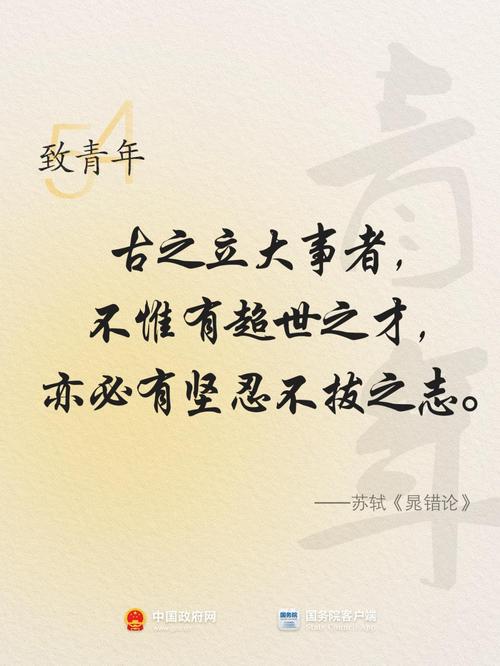 54
致青年
青年
古之立大事者，
不惟有超世之才，
亦必有坚忍不拔之志。
——苏轼《晁错论》
中国政府网
www.gov.cn
国务院
国务院客户端
State Council App